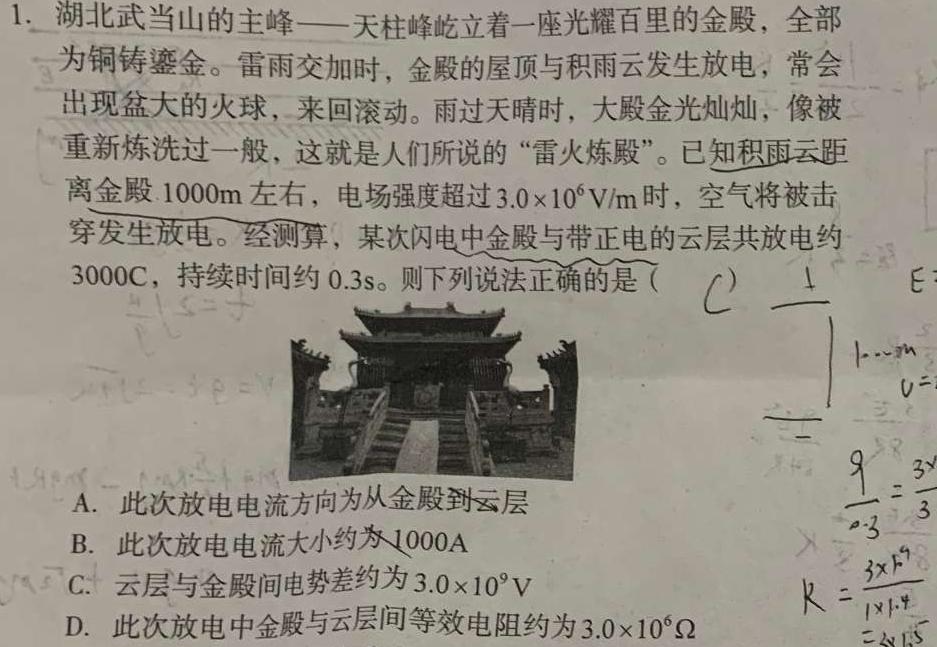 1. 湖北武当山的主峰——天柱峰屹立着一座光耀百里的金殿，全部
为铜铸鎏金。雷雨交加时，金殿的屋顶与积雨云发生放电，常会
出现盆大的火球，来回滚动。雨过天晴时，大殿金光灿灿，像被
重新炼洗过一般，这就是人们所说的“雷火炼殿”。已知积雨云距
离金殿 1000m 左右，电场强度超过 3.0×10⁶ V/m 时，空气将被击
穿发生放电。经测算，某次闪电中金殿与带正电的云层共放电约
3000C，持续时间约 0.3s。则下列说法正确的是（ C ）
A. 此次放电电流方向为从金殿到云层
B. 此次放电电流大小约为 1000A
C. 云层与金殿间电势差约为 3.0×10⁹ V
D. 此次放电中金殿与云层间等效电阻约为 3.0×10⁶ Ω
E
U=
q/0.3 = 3×/3
R =